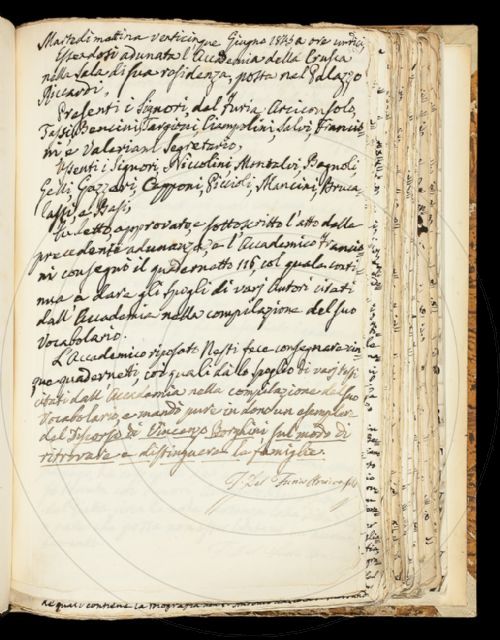 Martedì mattina venticinque Giugno 1843 a ore undici
Essendosi adunata l'Accademia della Crusca
nella Sala di sua residenza, posta nel Palazzo
Riccardi,
Presenti i Signori, del Furia, Arciconsolo,
Tassi, Bencini, Targioni, Ciampolini, Salvi, Francio-
ni e Valeriani Segretario,
Assenti i Signori, Niccolini, Montalvi, Bagnoli,
Gelli, Gazzeri, Capponi, Piccioli, Mancini, Bruca-
lassi, e Basi,
Fu letto, approvato, e sottoscritto l'atto della
precedente adunanza, e l'Accademico Francio-
ni consegnò il quadernetto 116, col quale conti-
nua a dare gli spogli di varj Autori citati
dall'Accademia nella compilazione del suo
Vocabolario.
L'Accademico riposato Nesti fece consegnare cin-
que quaderneti, coi quali dà lo spoglio di varj testi
citati dall'Accademia nella compilazione del suo
Vocabolario, e mandò pure in dono un esemplare
del Discorso di Vincenzo Borghini, sul modo di
ritrovare e distinguere le famiglie.
F. Del Furia Arciconsolo